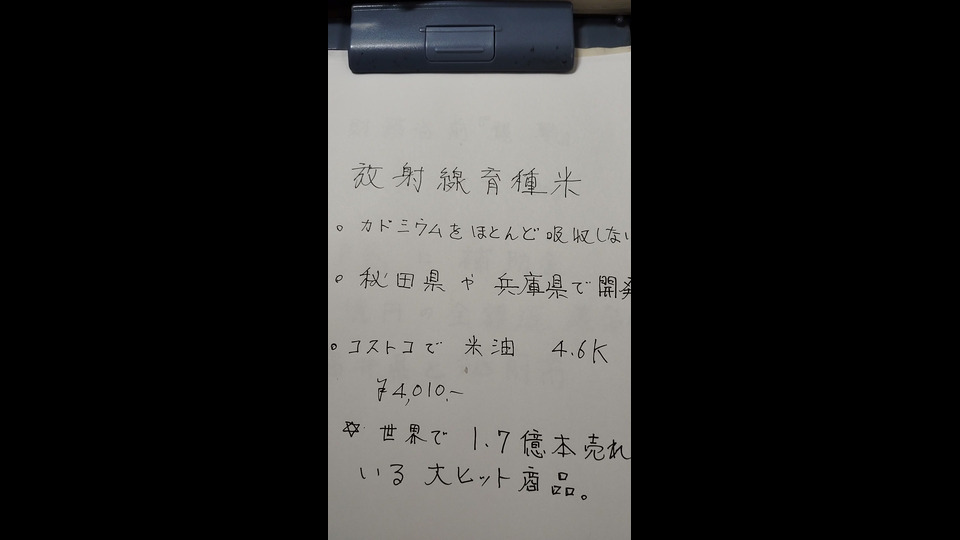 放射線育種米
。カドミウムをほとんど吸収しない
。秘田県や兵庫県で開発
。コストコで 米油 4.6K
¥4,010.-
☆ 世界で 1.7億本売れ
いる 大ヒット商品。